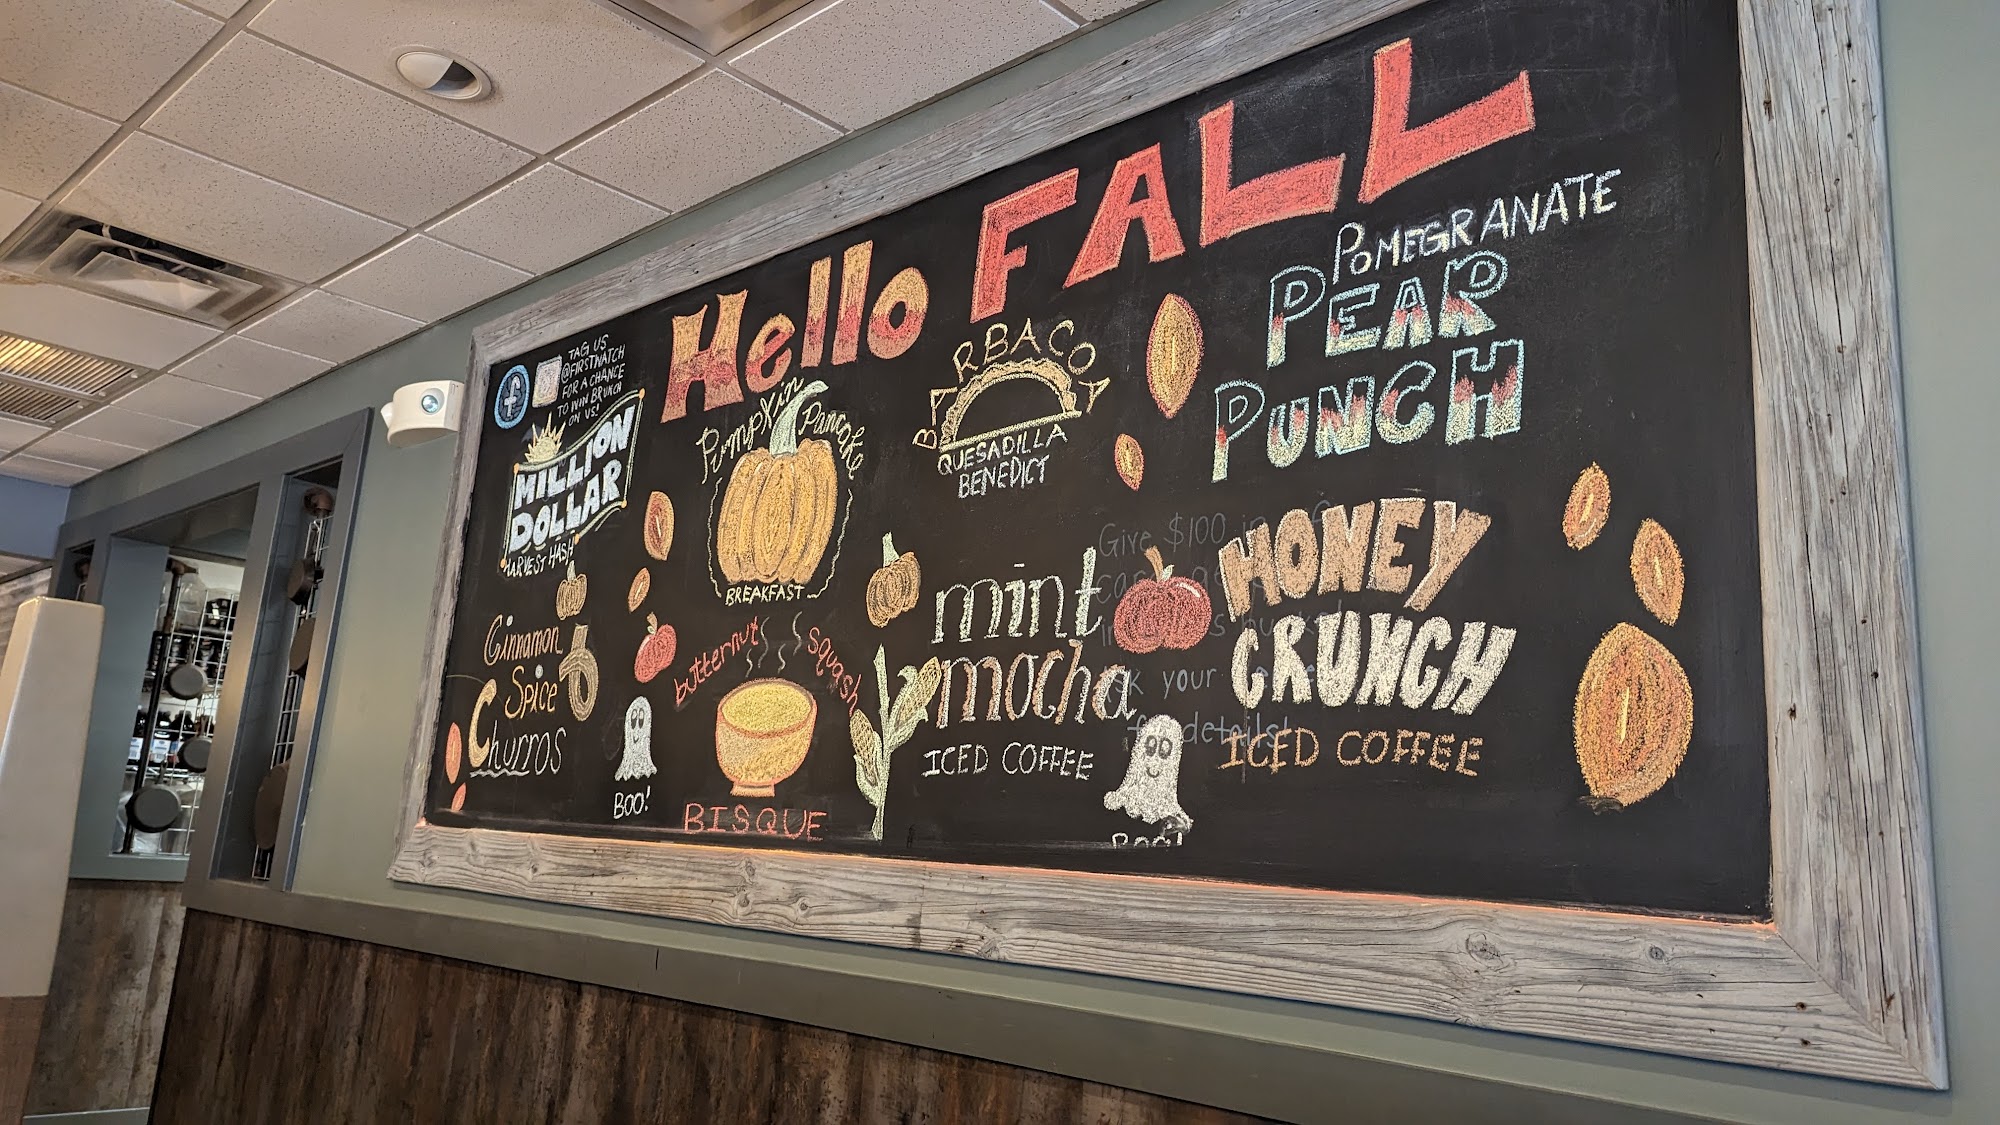 Hello FALL
TAG US
@FIRSTWATCH
FOR A CHANCE
TO WIN BRUNCH
ON US!
MILLION
DOLLAR
HARVEST HASH
Pumpkin Pancake
BREAKFAST
BARBACOA
QUESADILLA
BENEDICT
POMEGRANATE
PEAR
PUNCH
Cinnamon
Spice
Churros
BOO!
butternut squash
BISQUE
mint
mocha
ICED COFFEE
BOO!
HONEY
CRUNCH
ICED COFFEE
Give $100 in
your
details!